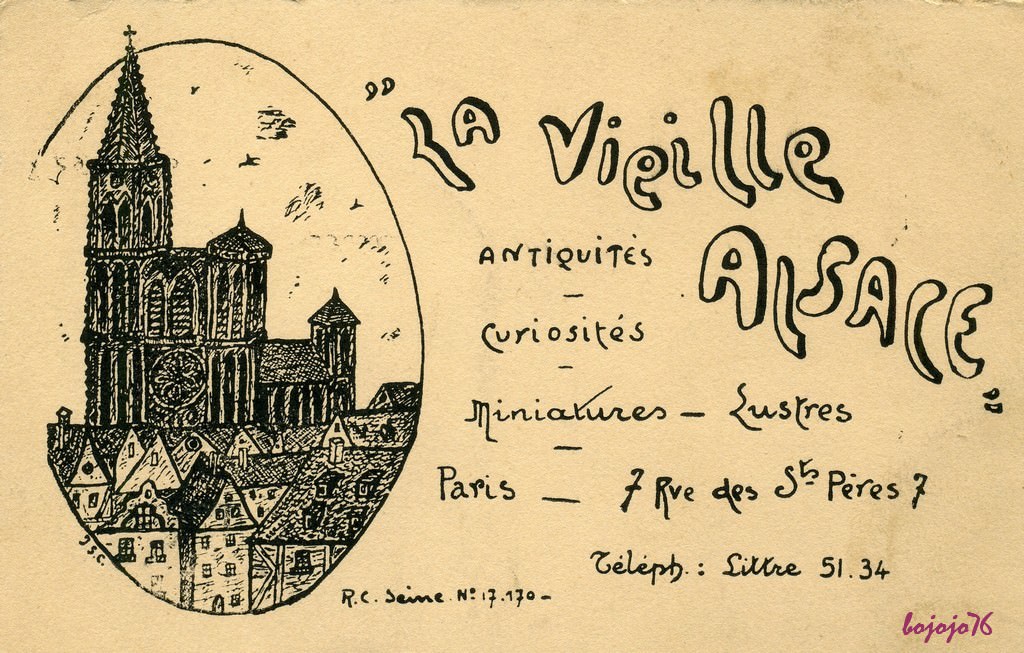 "La Vieille
Alsace"
Antiquités
-
Curiosités
-
Miniatures - Lustres
-
Paris - 7 Rue des Sts Pères 7
Téléph. : Littre 51.34
J.S.C.
R.C. Seine. No 17.170 -
bojojo76